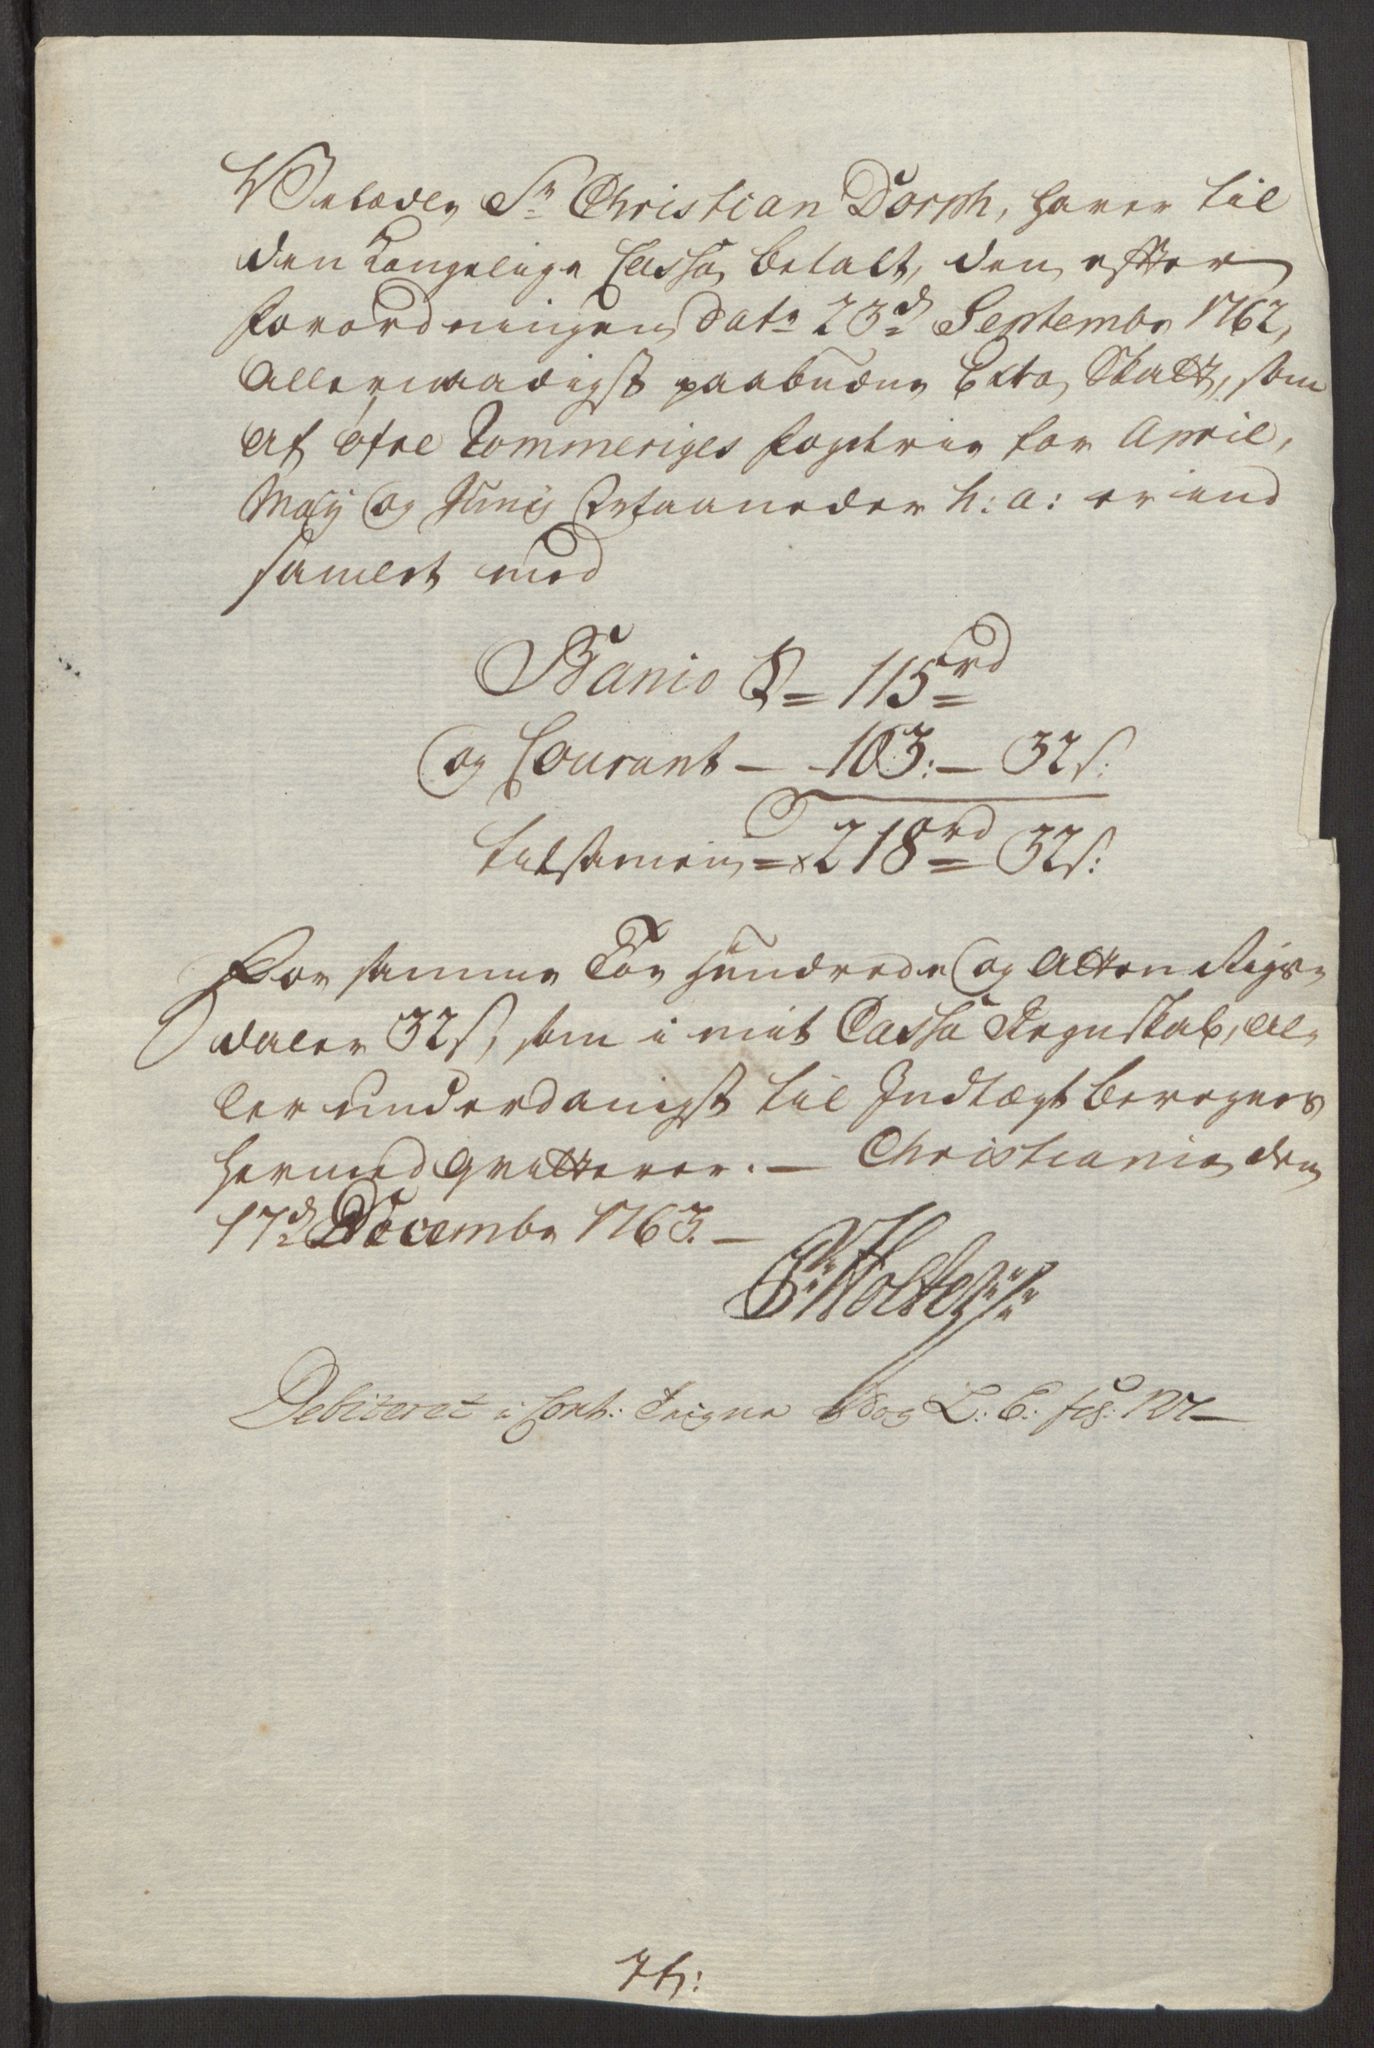 Velædle Sr Christian Dorph, haver til
den Kongelige Cassa betalt, den efter
Forordningen Dato 23d Septembr 1762,
Allernaadigst paabudne Extra Skatt, som
af øfre Rommeriges Fogderie for April,
Maij og Junij Maaneder h: a: er ind
samlet med
Banco S = 115rd
og Courant — 103: — 32s:
tilsamen = 218rd 32s:
For samme Toe Hundrede og Atten Rigs-
daler 32s, som i mit Cassa Regnskab, al-
lerunderdanigst til Indtægt beregnes
hermed qvitterer. — Christiania den
17d Decembr 1763. —
P: Holter
Debiteret i Cont: og L: C: fol: 127 —